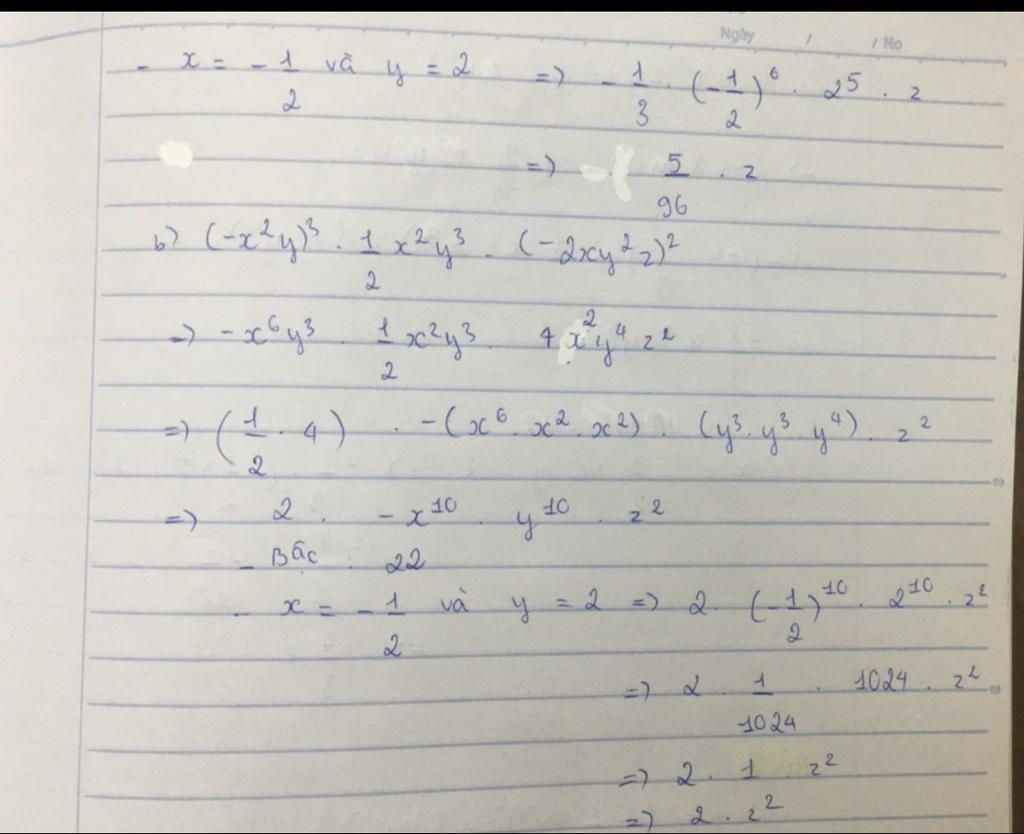 Ngày / / No
- x = - 1/2 và y = 2 => - 1/3 . (- 1/2)⁶ . 2⁵ . z
=> - 5/96 . z
b) (-x²y)³ . 1/2 x²y³ . (-2xy²z)²
=> -x⁶y³ . 1/2 x²y³ . 4 x²y⁴z²
=> (1/2 . 4) . -(x⁶ . x² . x²) . (y³ . y³ . y⁴) . z²
=> 2 . -x¹⁰ . y¹⁰ . z²
- Bậc : 22
- x = - 1/2 và y = 2 => 2 . (- 1/2)¹⁰ . 2¹⁰ . z²
=> 2 . 1/1024 . 1024 . z²
=> 2 . 1 . z²
=> 2 . z²